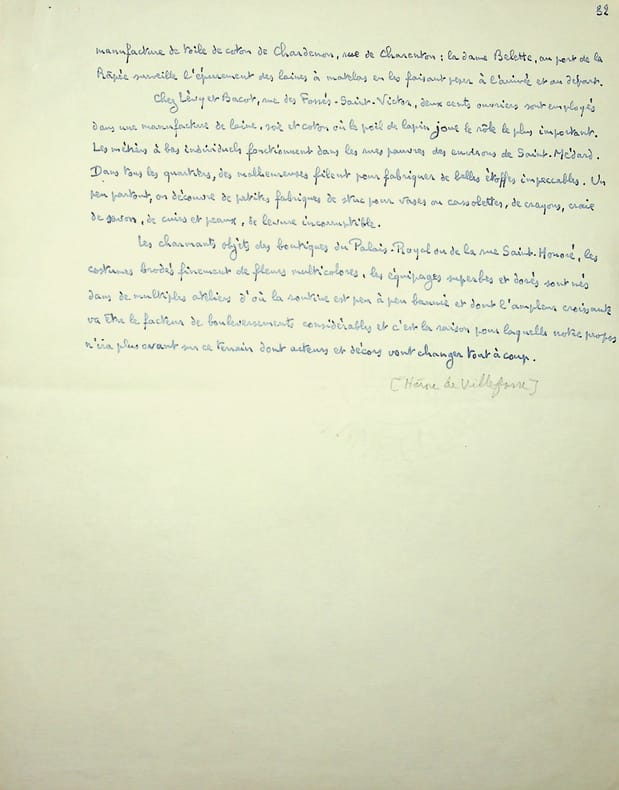 32
manufacture de toile de coton de Chardenon, rue de Charenton ; la dame Belette, au port de la
Râpée surveille l'épurement des laines à matelas en les faisant peser à l'arrivée et au départ.
Chez Lévy et Bacot, rue des Fossés-Saint-Victor, deux cents ouvriers sont employés
dans une manufacture de laine, soie et coton où le poil de lapin joue le rôle le plus important.
Les métiers à bas individuels fonctionnent dans les rues pauvres des environs de Saint-Médard.
Dans tous les quartiers, des malheureuses filent pour fabriquer de belles étoffes impeccables. Un
peu partout, on découvre de petites fabriques de stuc pour vases ou cassolettes, de crayons, craie
de savon, de cuirs et peaux, de levure incorruptible.
Les charmants objets des boutiques du Palais-Royal ou de la rue Saint-Honoré, les
costumes brodés finement de fleurs multicolores, les équipages superbes et dorés sont nés
dans de multiples ateliers d'où la routine est peu à peu bannie et dont l'ampleur croissante
va être le facteur de bouleversements considérables et c'est la raison pour laquelle notre propos
n'ira plus avant sur ce terrain dont acteurs et décors vont changer tout à coup.
[Héron de Villefosse]